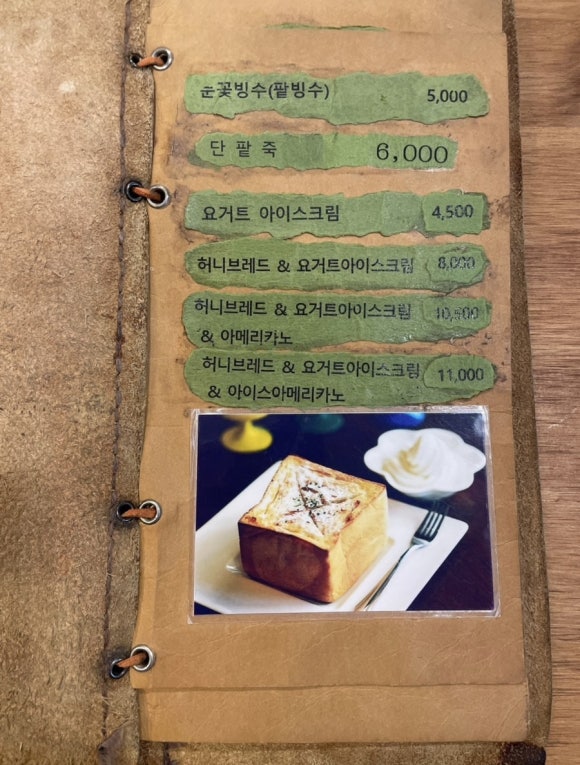 눈꽃빙수(팥빙수) 5,000
단 팥 죽 6,000
요거트 아이스크림 4,500
허니브레드 & 요거트아이스크림 8,000
허니브레드 & 요거트아이스크림 10,500
& 아메리카노
허니브레드 & 요거트아이스크림 11,000
& 아이스아메리카노